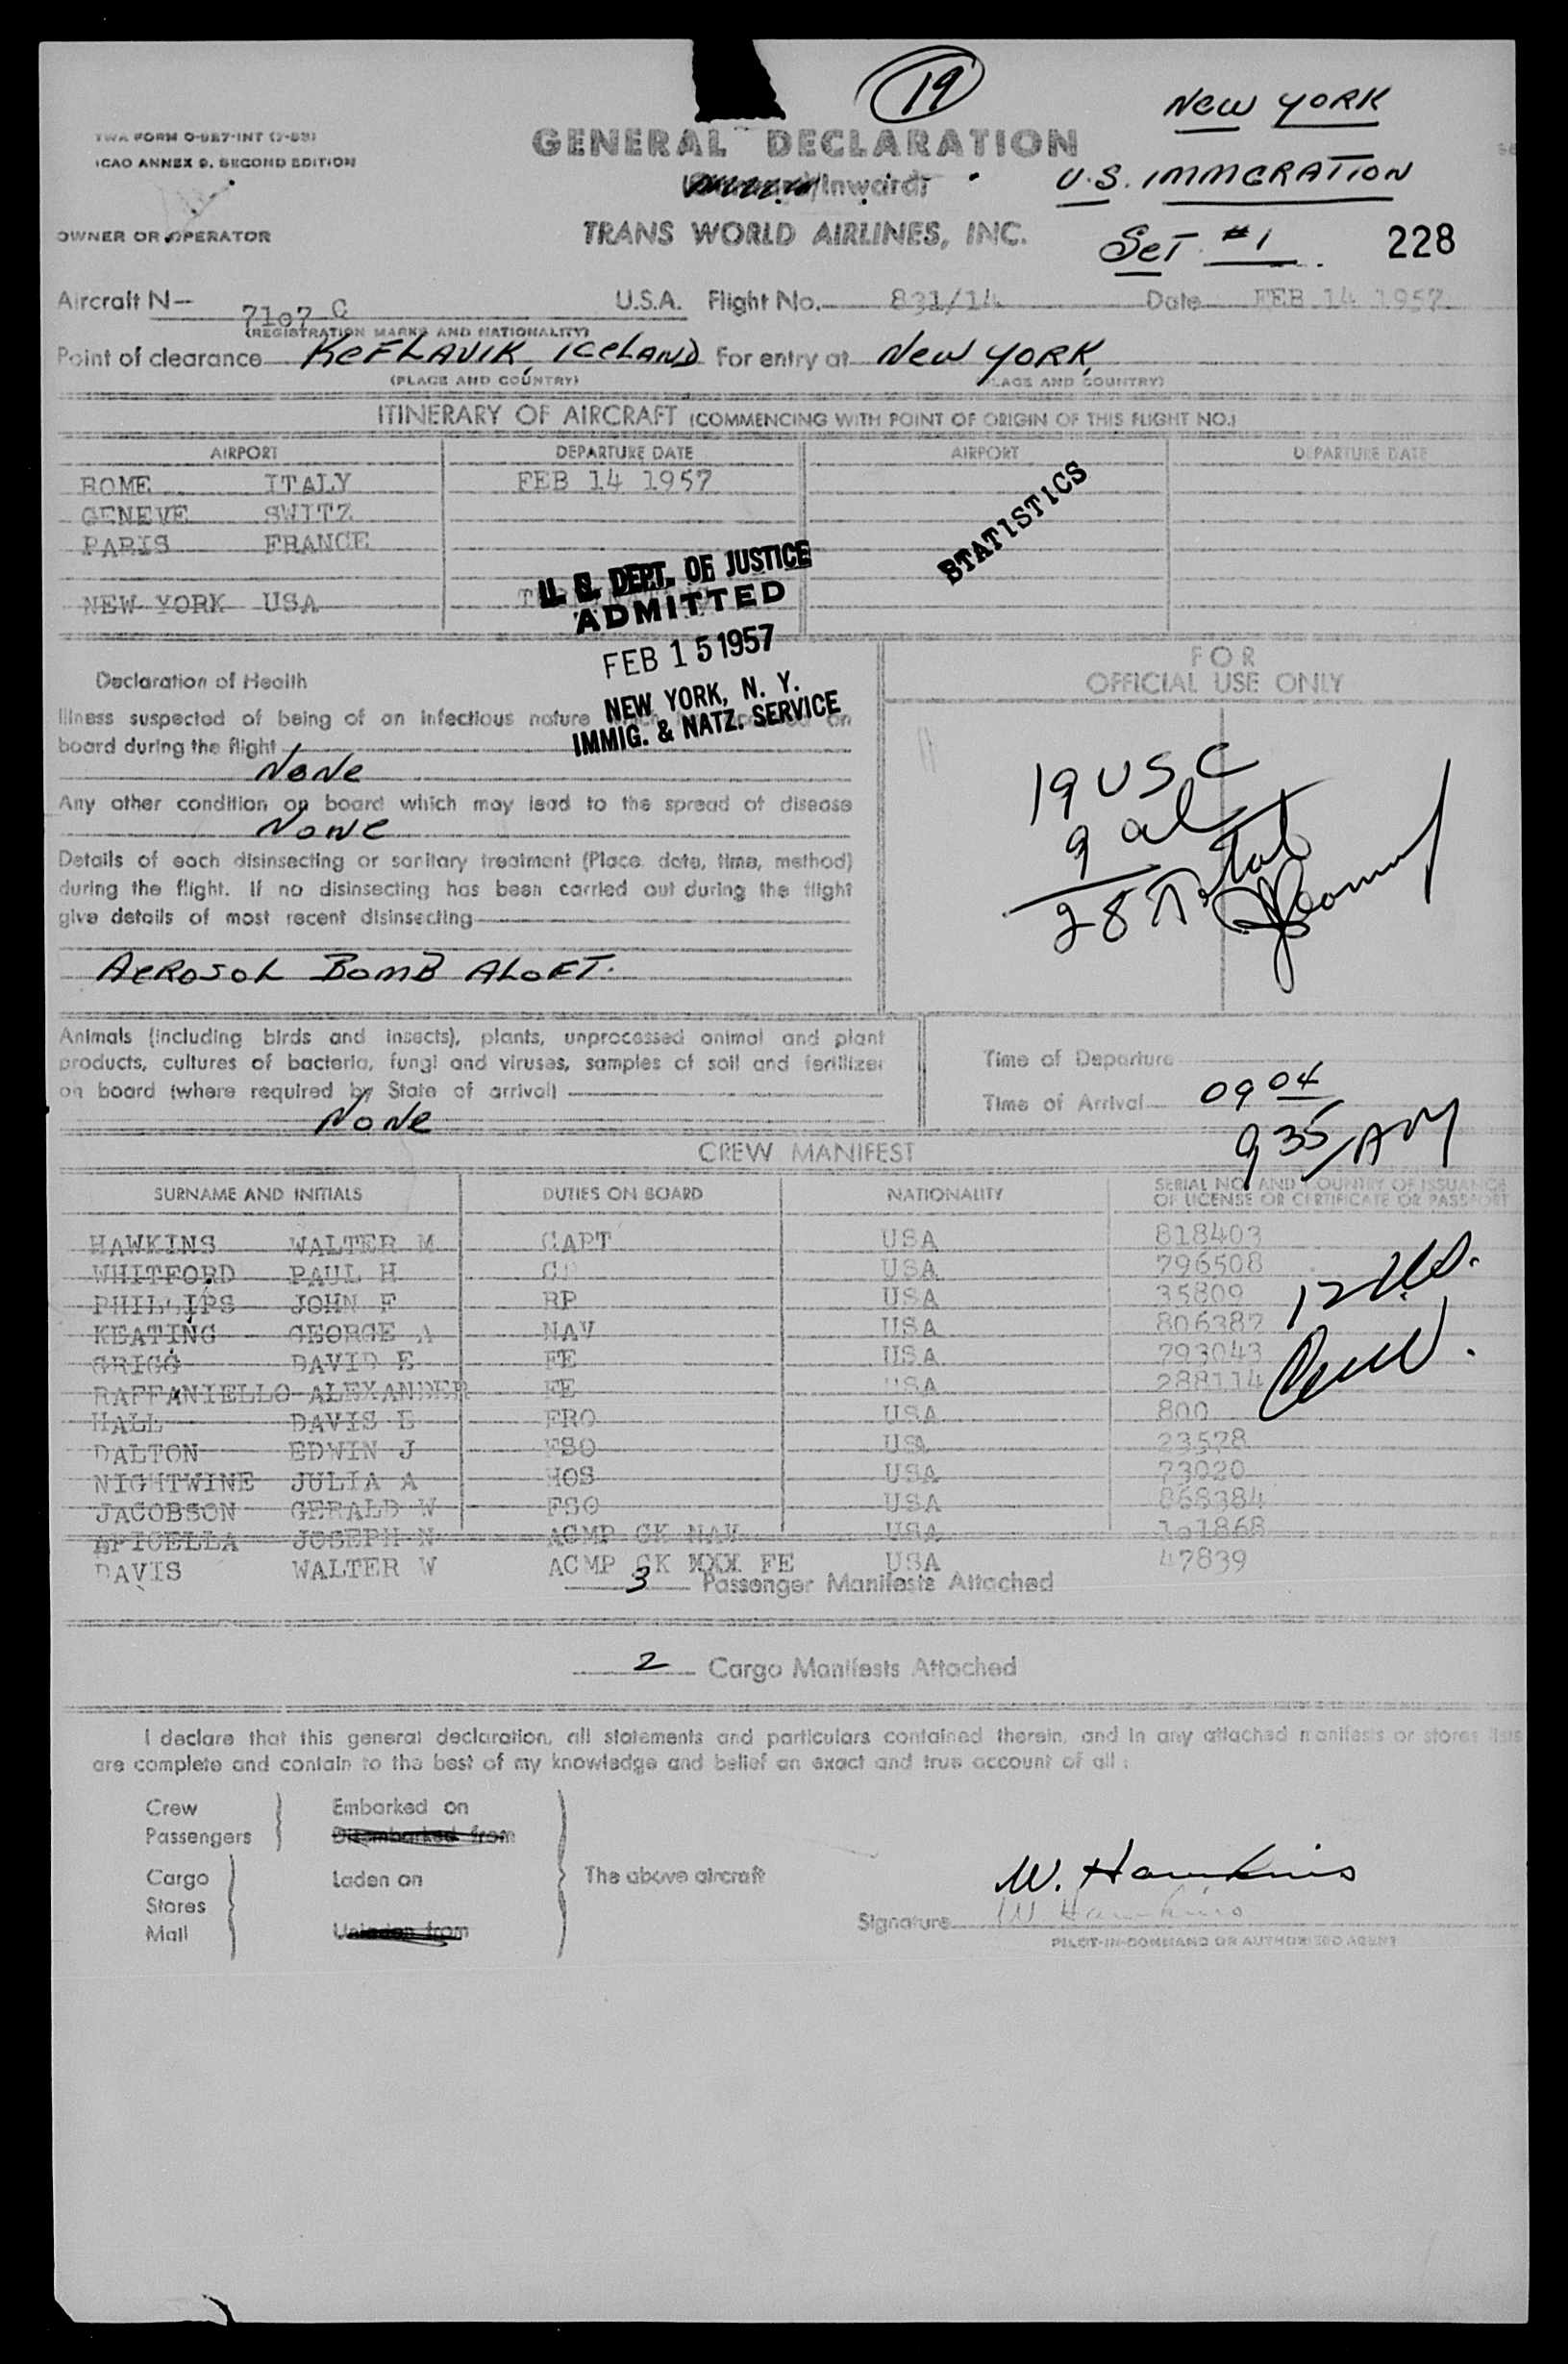 19
NEW YORK
TWA FORM O-987-INT (7-53)
ICAO ANNEX 9, SECOND EDITION
GENERAL DECLARATION
Inward)
U.S. IMMGRATION
OWNER OR OPERATOR
TRANS WORLD AIRLINES, INC.
SET #1
228
Aircraft N— 7107 C U.S.A. Flight No. 831/14 Date FEB 14 1957
(REGISTRATION MARKS AND NATIONALITY)
Point of clearance KEFLAVIK, ICELAND For entry at NEW YORK,
(PLACE AND COUNTRY) (PLACE AND COUNTRY)
ITINERARY OF AIRCRAFT (COMMENCING WITH POINT OF ORIGIN OF THIS FLIGHT NO.)
AIRPORT DEPARTURE DATE AIRPORT DEPARTURE DATE
ROME ITALY FEB 14 1957
GENEVE SWITZ
PARIS FRANCE
NEW YORK USA
STATISTICS
U. S. DEPT. OF JUSTICE
ADMITTED
FEB 15 1957
NEW YORK, N. Y.
IMMIG. & NATZ. SERVICE
Declaration of Health
Illness suspected of being of an infectious nature which on
board during the flight
None
Any other condition on board which may lead to the spread of disease
None
Details of each disinsecting or sanitary treatment (Place, date, time, method)
during the flight. If no disinsecting has been carried out during the flight
give details of most recent disinsecting
AEROSOL BOMB ALOFT.
FOR
OFFICIAL USE ONLY
19 USC
9 al
28 Total
Animals (including birds and insects), plants, unprocessed animal and plant
products, cultures of bacteria, fungi and viruses, samples of soil and fertilizer
on board (where required by State of arrival)
None
Time of Departure
Time of Arrival 0904
935 AM
CREW MANIFEST
SURNAME AND INITIALS DUTIES ON BOARD NATIONALITY SERIAL NO. AND COUNTRY OF ISSUANCE
OF LICENSE OR CERTIFICATE OR PASSPORT
HAWKINS WALTER M CAPT USA 818403
WHITFORD PAUL H USA 796508
PHILLIPS JOHN F RP USA 35809
KEATING GEORGE A NAV USA 806387
GRIGG DAVID E FE USA 793043
RAFFANIELLO ALEXANDER FE USA 288114
HALL DAVIS E FRO USA 800
DALTON EDWIN J FSO USA 23578
NIGHTWINE JULIA A HOS USA 73020
JACOBSON GERALD W FSO USA 868384
APICELLA JOSEPH N ACMP CK NAV USA 101868
DAVIS WALTER W ACMP CK XXX FE USA 47839
12 U.S.
Crew.
3 Passenger Manifests Attached
2 Cargo Manifests Attached
I declare that this general declaration, all statements and particulars contained therein, and in any attached manifests or stores lists
are complete and contain to the best of my knowledge and belief an exact and true account of all :
Crew Embarked on
Passengers Disembarked from
Cargo Laden on The above aircraft
Stores
Mail Unladen from
W. Hawkins
Signature W Hawkins
PILOT-IN-COMMAND OR AUTHORIZED AGENT